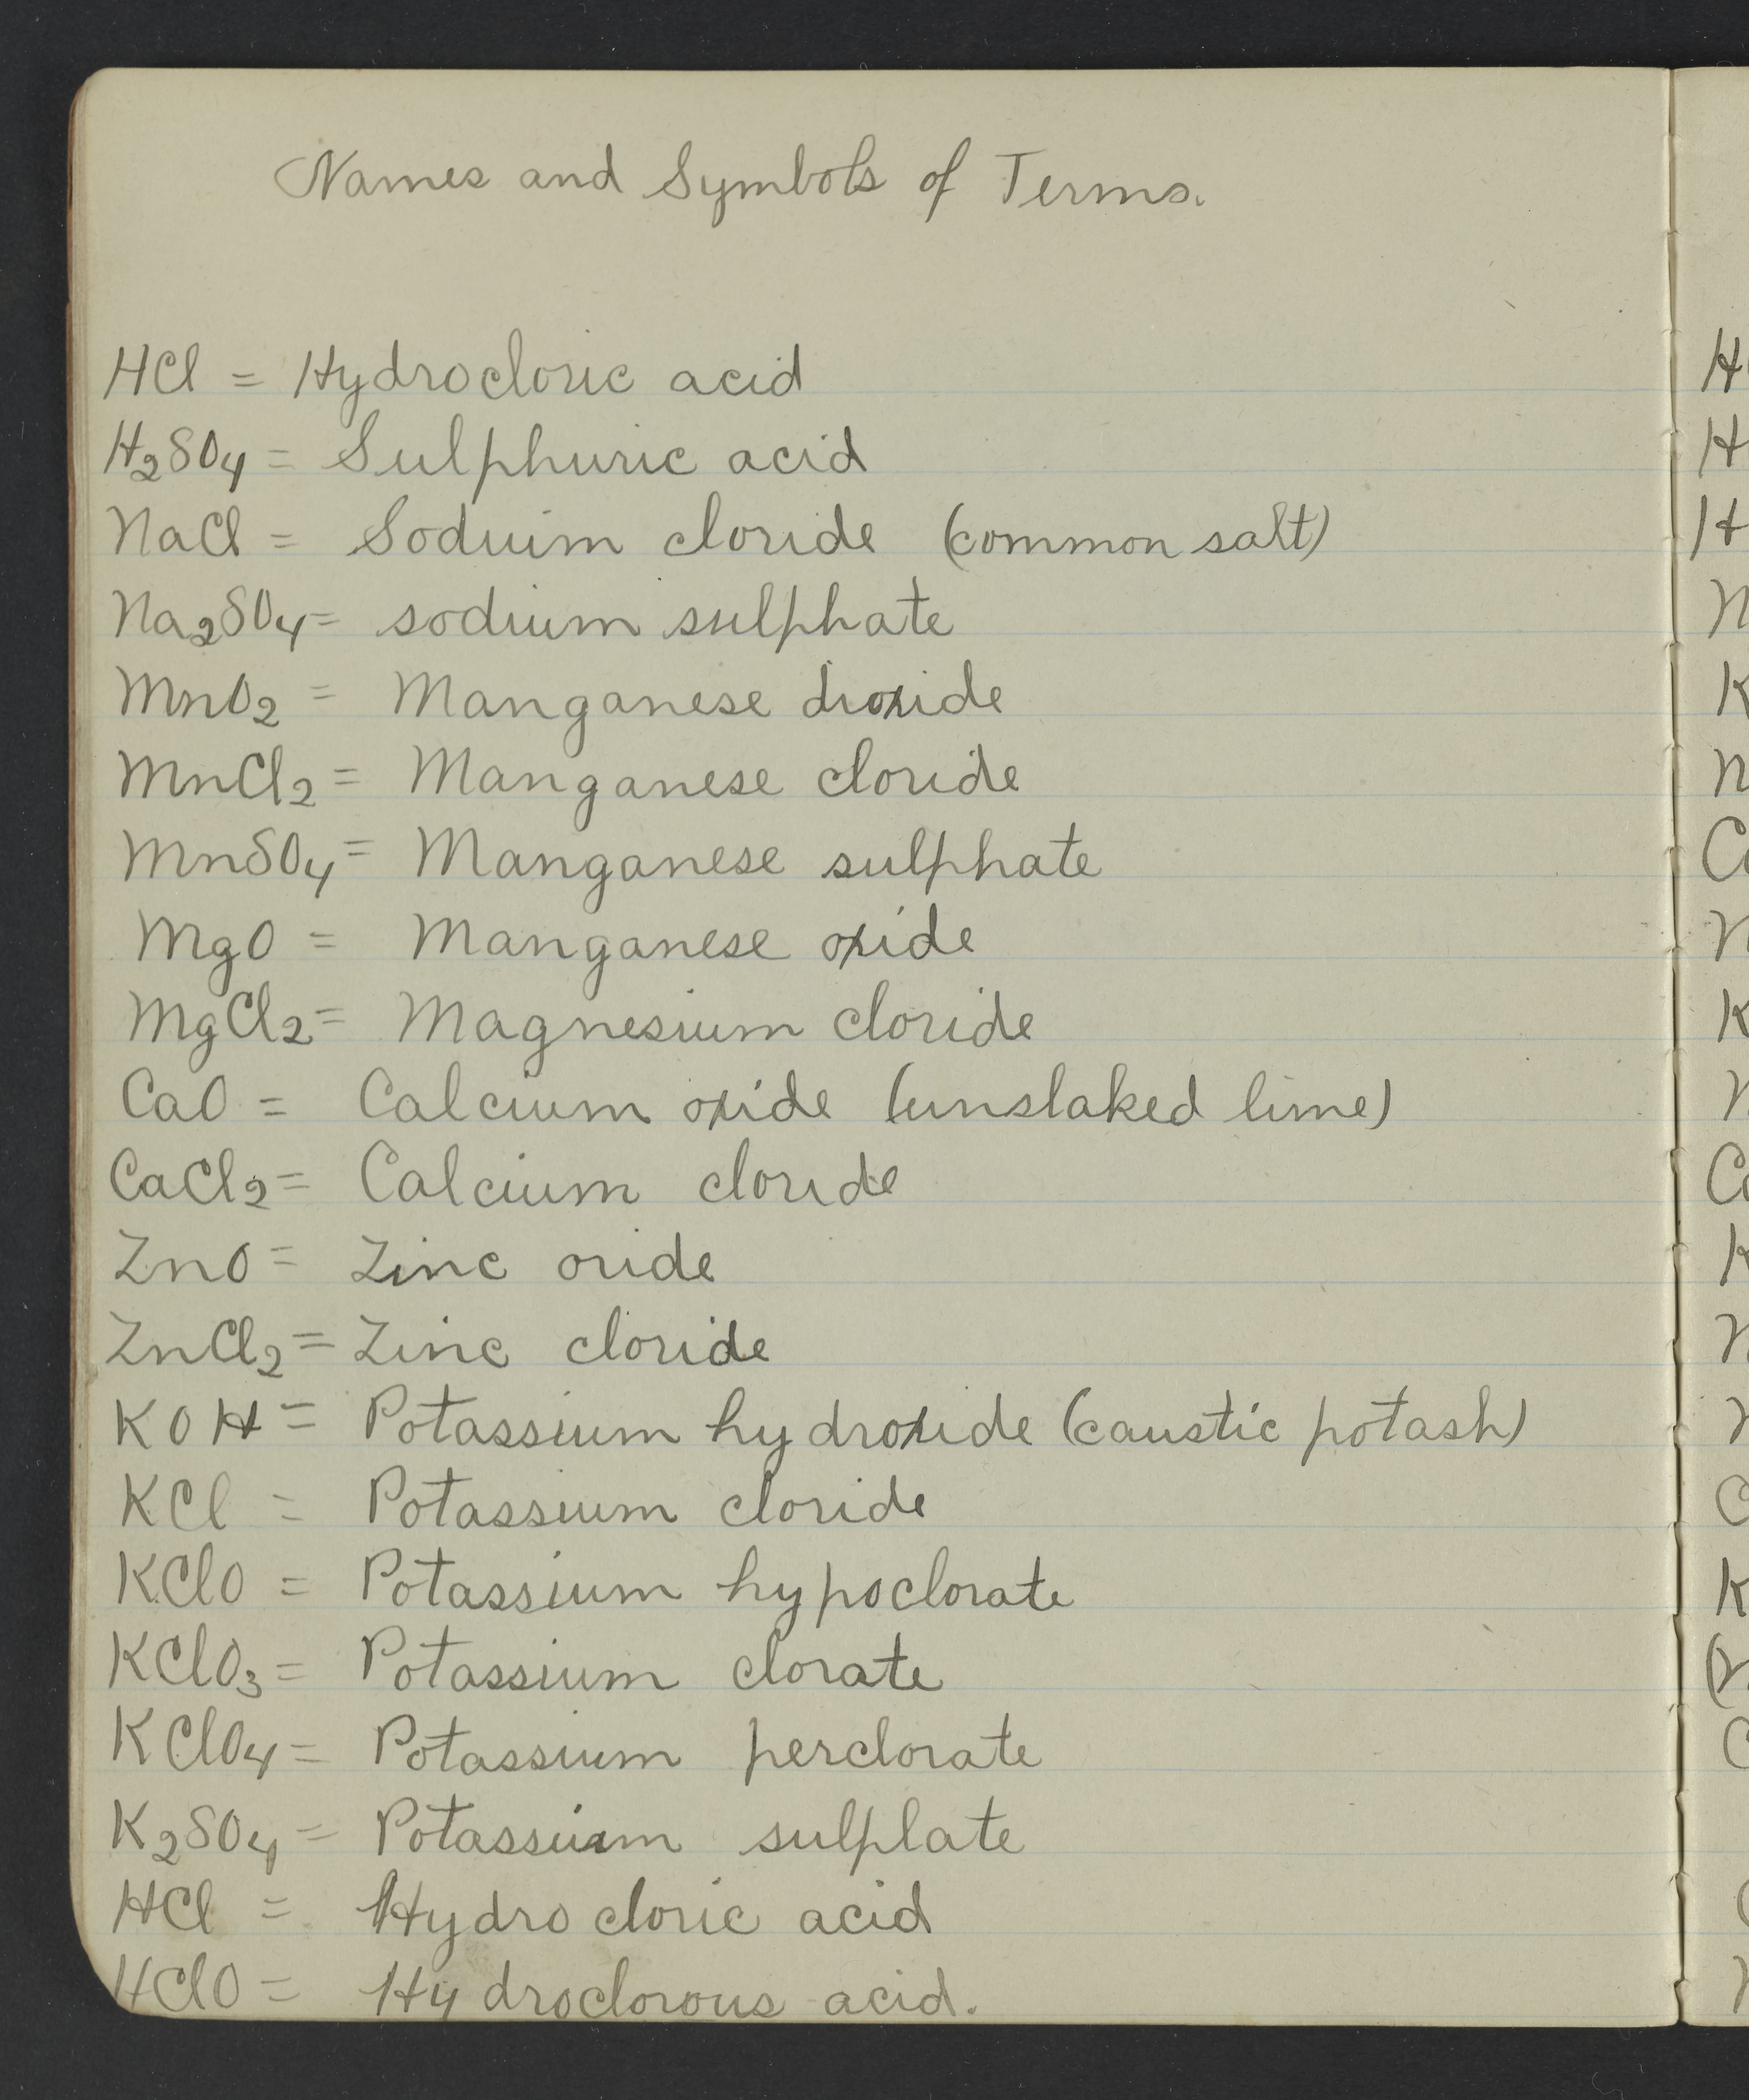 Names and Symbols of Terms.
HCl = Hydrocloric acid
H₂SO₄ = Sulphuric acid
NaCl = Soduim cloride (common salt)
Na₂SO₄ = sodium sulphate
MnO₂ = Manganese dioxide
MnCl₂ = Manganese cloride
MnSO₄ = Manganese sulphate
MgO = Manganese oxide
MgCl₂ = Magnesium cloride
CaO = Calcium oxide (unslaked lime)
CaCl₂ = Calcium cloride
ZnO = Zinc oxide
ZnCl₂ = Zinc cloride
KOH = Potassium hydroxide (caustic potash)
KCl = Potassium cloride
KClO = Potassium hypoclorate
KClO₃ = Potassium clorate
KClO₄ = Potassium perclorate
K₂SO₄ = Potassium sulplate
HCl = Hydrocloric acid
HClO = Hydroclorous acid.